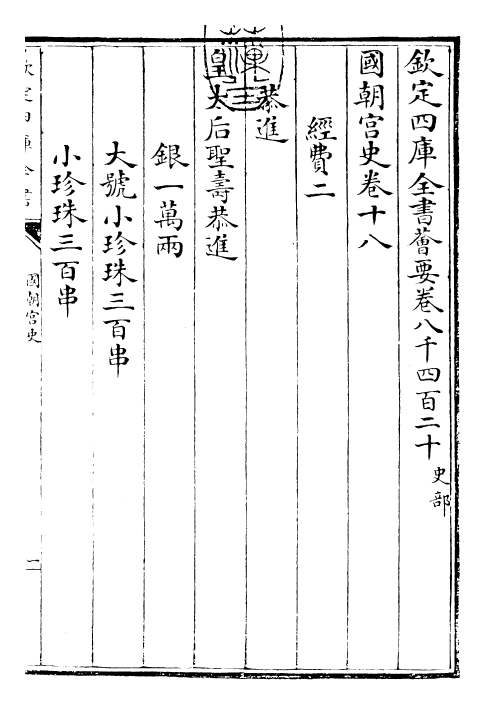 欽定四庫全書薈要卷八千四百二十史部
國朝宫史卷十八
經費二
恭進
皇太后聖壽恭進
銀一萬兩
大號小珍珠三百串
小珍珠三百串
欽定四庫全書
國朝宫史
一